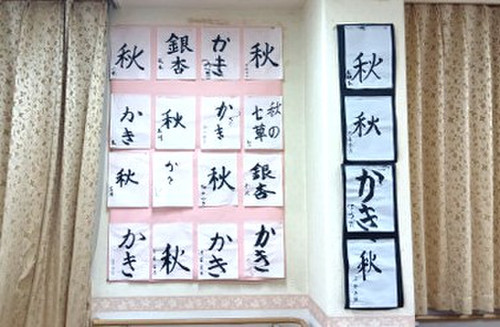 秋
銀杏
かき
秋
かき
秋
かき
秋の
七草
秋
秋
銀杏
かき
秋
かき
かき
秋
秋
かき
秋